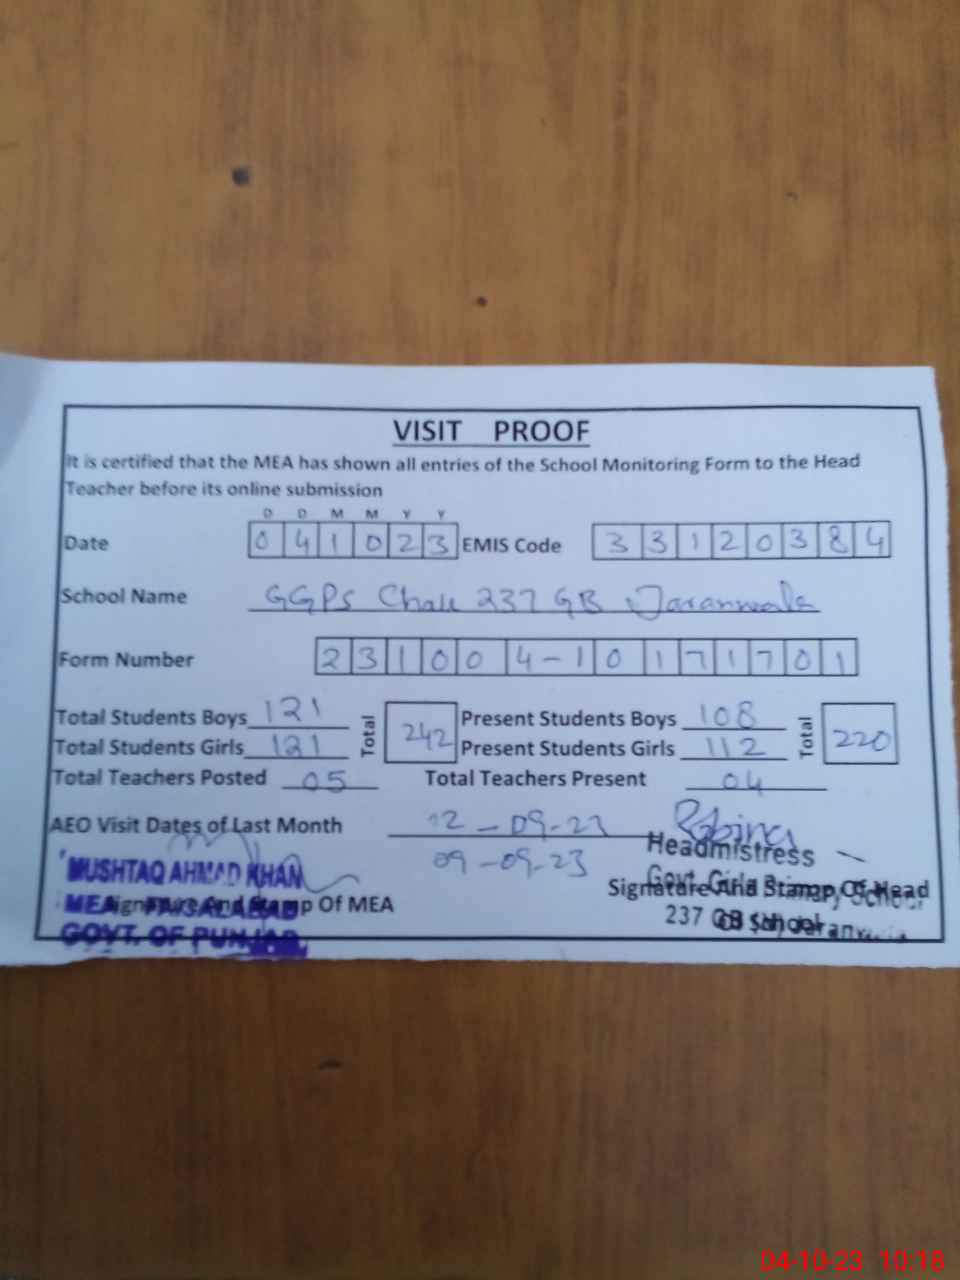 VISIT PROOF
It is certified that the MEA has shown all entries of the School Monitoring Form to the Head
Teacher before its online submission
D D M M Y Y
Date 041023 EMIS Code 33120384
School Name GGPS Chak 237 GB Jaranwala
Form Number 231004-10171701
Total Students Boys 121 Total 242 Present Students Boys 108 Total 220
Total Students Girls 121 Present Students Girls 112
Total Teachers Posted 05 Total Teachers Present 04
AEO Visit Dates of Last Month 12-09-23 Robina
09-09-23
MUSHTAQ AHMAD KHAN
MEA FAISALABAD
GOVT. OF PUNJAB
Signature And Stamp Of MEA
Headmistress
Govt. Girls Primary School
237 GB
Signature And Stamp Of Head
Of School
04-10-23 10:18